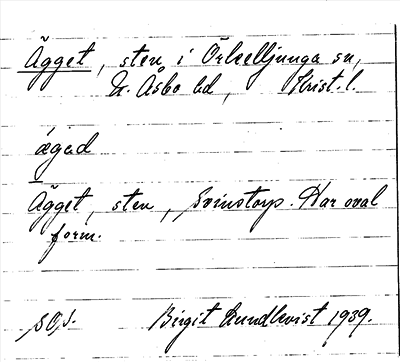 Ägget, sten i Örkelljunga sn,
N. Åsbo hd, Krist. l.
ägad
Ägget, sten, Svinstorp. Har oval
form.
Birgit Lundkvist 1939.